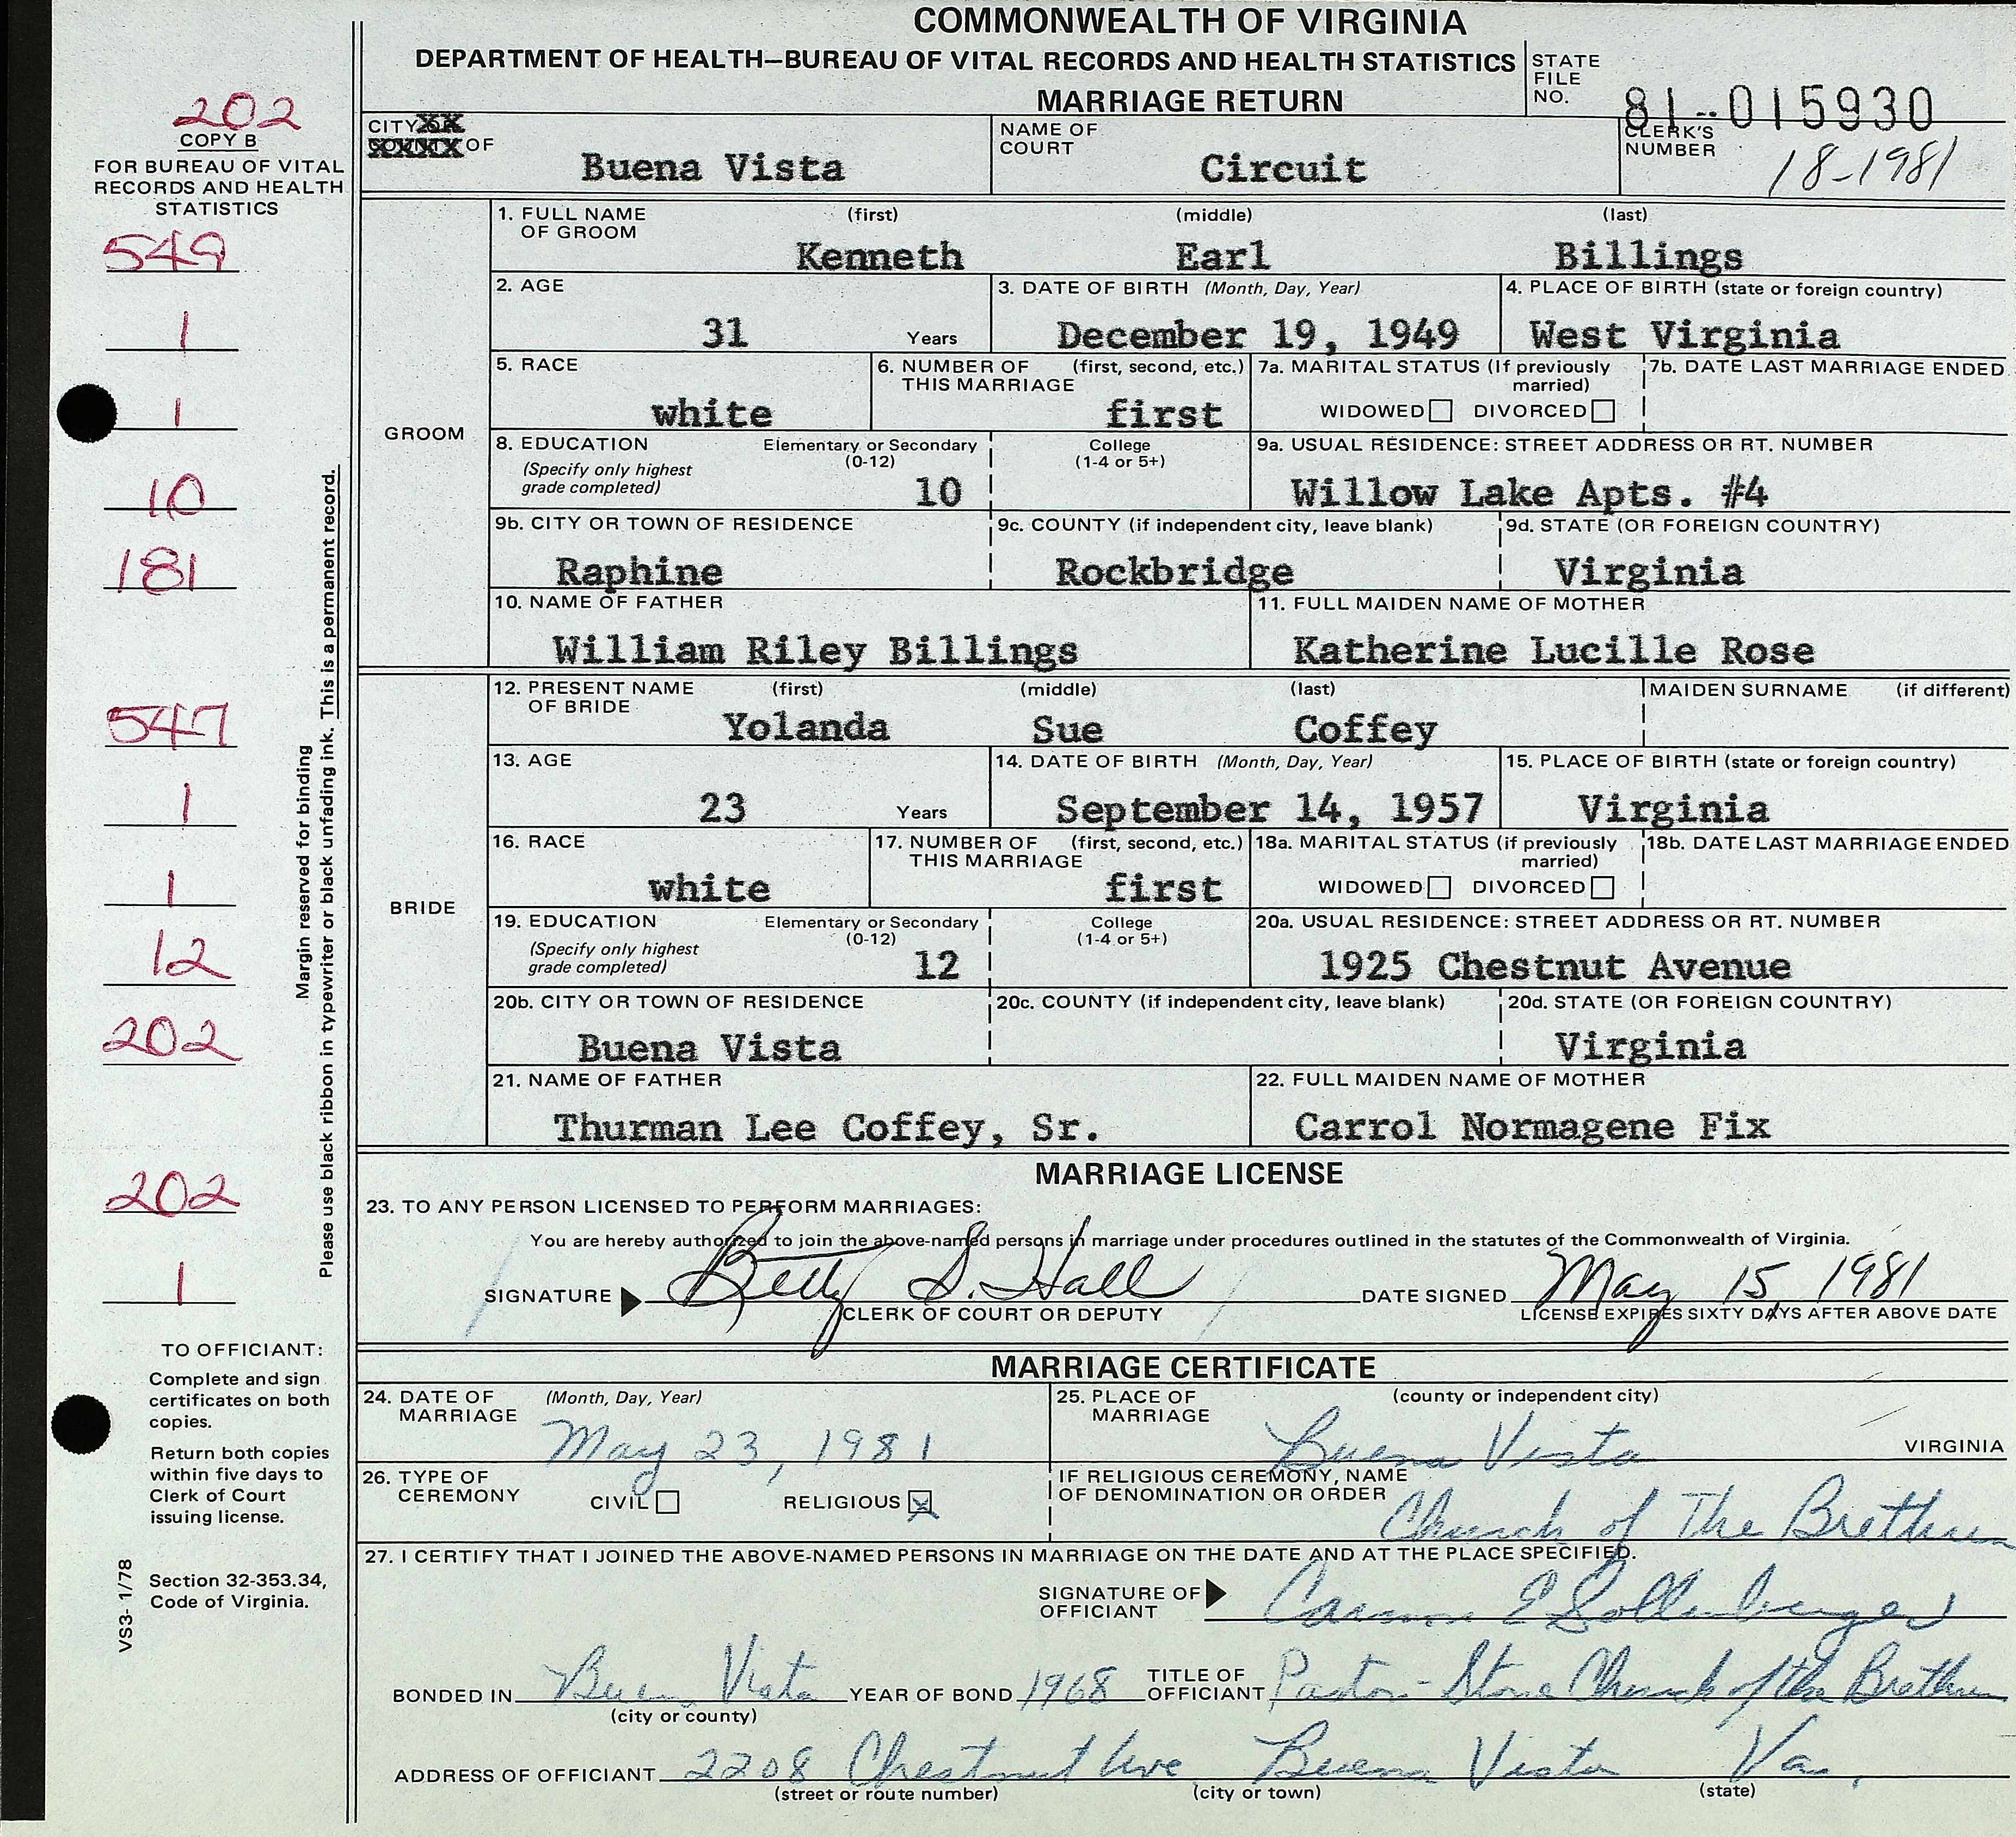 COMMONWEALTH OF VIRGINIA
DEPARTMENT OF HEALTH—BUREAU OF VITAL RECORDS AND HEALTH STATISTICS
MARRIAGE RETURN
STATE FILE NO. 81-015930
202
COPY B
FOR BUREAU OF VITAL
RECORDS AND HEALTH
STATISTICS
549
1
1
10
181
547
1
1
12
202
202
1
Margin reserved for binding
Please use black ribbon in typewriter or black unfading ink. This is a permanent record.
TO OFFICIANT:
Complete and sign
certificates on both
copies.
Return both copies
within five days to
Clerk of Court
issuing license.
Section 32-353.34,
Code of Virginia.
VS3- 1/78
CITY OR COUNTY OF Buena Vista
NAME OF COURT Circuit
CLERK'S NUMBER 18-1981
GROOM
1. FULL NAME OF GROOM (first) (middle) (last)
Kenneth Earl Billings
2. AGE 31 Years
3. DATE OF BIRTH (Month, Day, Year) December 19, 1949
4. PLACE OF BIRTH (state or foreign country) West Virginia
5. RACE white
6. NUMBER OF THIS MARRIAGE (first, second, etc.) first
7a. MARITAL STATUS (If previously married) WIDOWED DIVORCED
7b. DATE LAST MARRIAGE ENDED
8. EDUCATION (Specify only highest grade completed) Elementary or Secondary (0-12) 10 College (1-4 or 5+)
9a. USUAL RESIDENCE: STREET ADDRESS OR RT. NUMBER Willow Lake Apts. #4
9b. CITY OR TOWN OF RESIDENCE Raphine
9c. COUNTY (if independent city, leave blank) Rockbridge
9d. STATE (OR FOREIGN COUNTRY) Virginia
10. NAME OF FATHER William Riley Billings
11. FULL MAIDEN NAME OF MOTHER Katherine Lucille Rose
BRIDE
12. PRESENT NAME OF BRIDE (first) (middle) (last) MAIDEN SURNAME (if different)
Yolanda Sue Coffey
13. AGE 23 Years
14. DATE OF BIRTH (Month, Day, Year) September 14, 1957
15. PLACE OF BIRTH (state or foreign country) Virginia
16. RACE white
17. NUMBER OF THIS MARRIAGE (first, second, etc.) first
18a. MARITAL STATUS (if previously married) WIDOWED DIVORCED
18b. DATE LAST MARRIAGE ENDED
19. EDUCATION (Specify only highest grade completed) Elementary or Secondary (0-12) 12 College (1-4 or 5+)
20a. USUAL RESIDENCE: STREET ADDRESS OR RT. NUMBER 1925 Chestnut Avenue
20b. CITY OR TOWN OF RESIDENCE Buena Vista
20c. COUNTY (if independent city, leave blank)
20d. STATE (OR FOREIGN COUNTRY) Virginia
21. NAME OF FATHER Thurman Lee Coffey, Sr.
22. FULL MAIDEN NAME OF MOTHER Carrol Normagene Fix
MARRIAGE LICENSE
23. TO ANY PERSON LICENSED TO PERFORM MARRIAGES:
You are hereby authorized to join the above-named persons in marriage under procedures outlined in the statutes of the Commonwealth of Virginia.
SIGNATURE Betty S. Hall DATE SIGNED May 15, 1981
CLERK OF COURT OR DEPUTY LICENSE EXPIRES SIXTY DAYS AFTER ABOVE DATE
MARRIAGE CERTIFICATE
24. DATE OF MARRIAGE (Month, Day, Year) May 23, 1981
25. PLACE OF MARRIAGE (county or independent city) Buena Vista VIRGINIA
26. TYPE OF CEREMONY CIVIL RELIGIOUS X
IF RELIGIOUS CEREMONY, NAME OF DENOMINATION OR ORDER Church of The Brethren
27. I CERTIFY THAT I JOINED THE ABOVE-NAMED PERSONS IN MARRIAGE ON THE DATE AND AT THE PLACE SPECIFIED.
SIGNATURE OF OFFICIANT E
BONDED IN Buena Vista YEAR OF BOND 1968 TITLE OF OFFICIANT Pastor - Stone Church of the Brethren
(city or county)
ADDRESS OF OFFICIANT 2208 Chestnut Ave Buena Vista Va.
(street or route number) (city or town) (state)